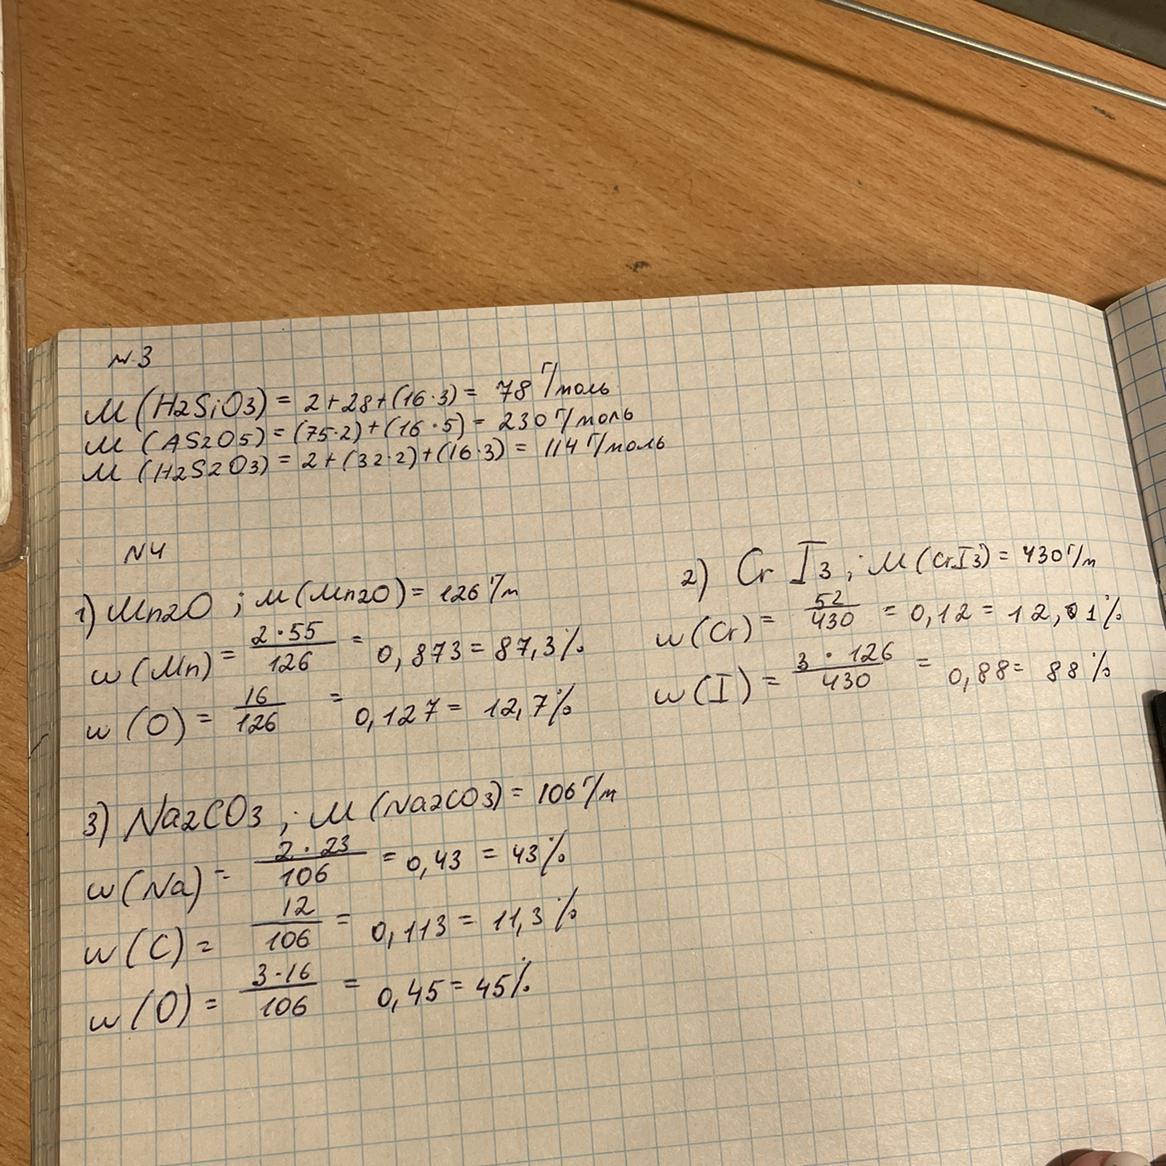 N.3
M (H2SiO3) = 2+28+(16·3) = 78 г/моль
M (AS2O5) = (75·2)+(16·5) = 230 г/моль
M (H2S2O3) = 2+(32·2)+(16·3) = 114 г/моль
N4
1) Mn2O ; M(Mn2O) = 126 г/м
w (Mn) = 2·55/126 = 0,873 = 87,3%
w (O) = 16/126 = 0,127 = 12,7%
2) Cr I3 ; M(CrI3) = 430 г/м
w (Cr) = 52/430 = 0,12 = 12,01%
w (I) = 3·126/430 = 0,88 = 88%
3) Na2CO3 ; M (Na2CO3) = 106 г/м
w (Na) = 2·23/106 = 0,43 = 43%
w (C) = 12/106 = 0,113 = 11,3%
w (O) = 3·16/106 = 0,45 = 45%